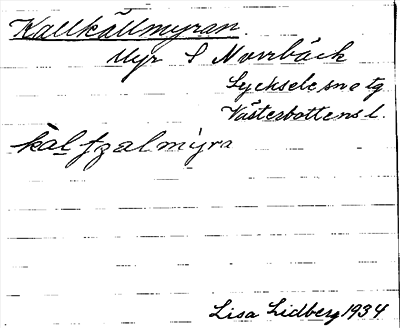 Kallkällmyran.
Myr S Norrbäck
Lycksele sn o tg
Västerbottens l.
kal fzalmyra
Lisa Lidberg 1934